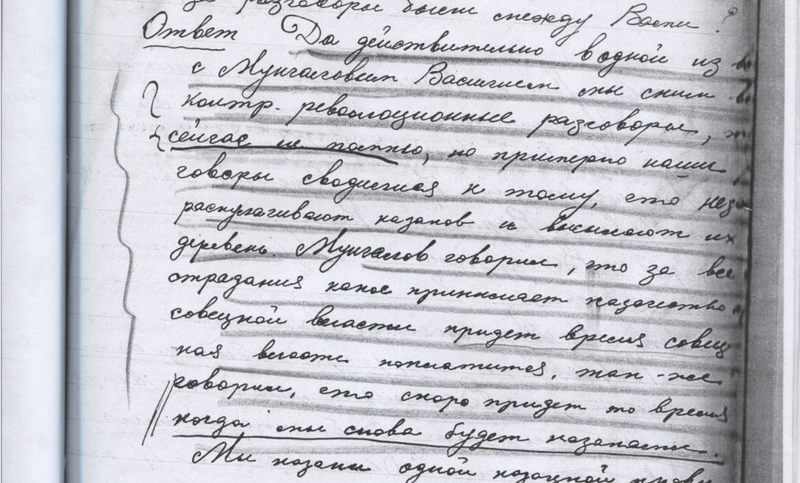 разговоры были между Вами?
Ответ Да действительно в одной из
с Мунгаловым Василием мы с ним
контр. революционные разговоры,
сейчас не помню, но примерно наши
говоры сводились к тому, что
раскулачивают казаков и высылают их
деревень. Мунгалов говорил, что за все
страдания какое принимает казачество
совецкой власти придет время совец
ная власть поплатится, так-же
говорил, что скоро придет то время
когда мы снова будет казаками.
Мы казаки одной казацкой